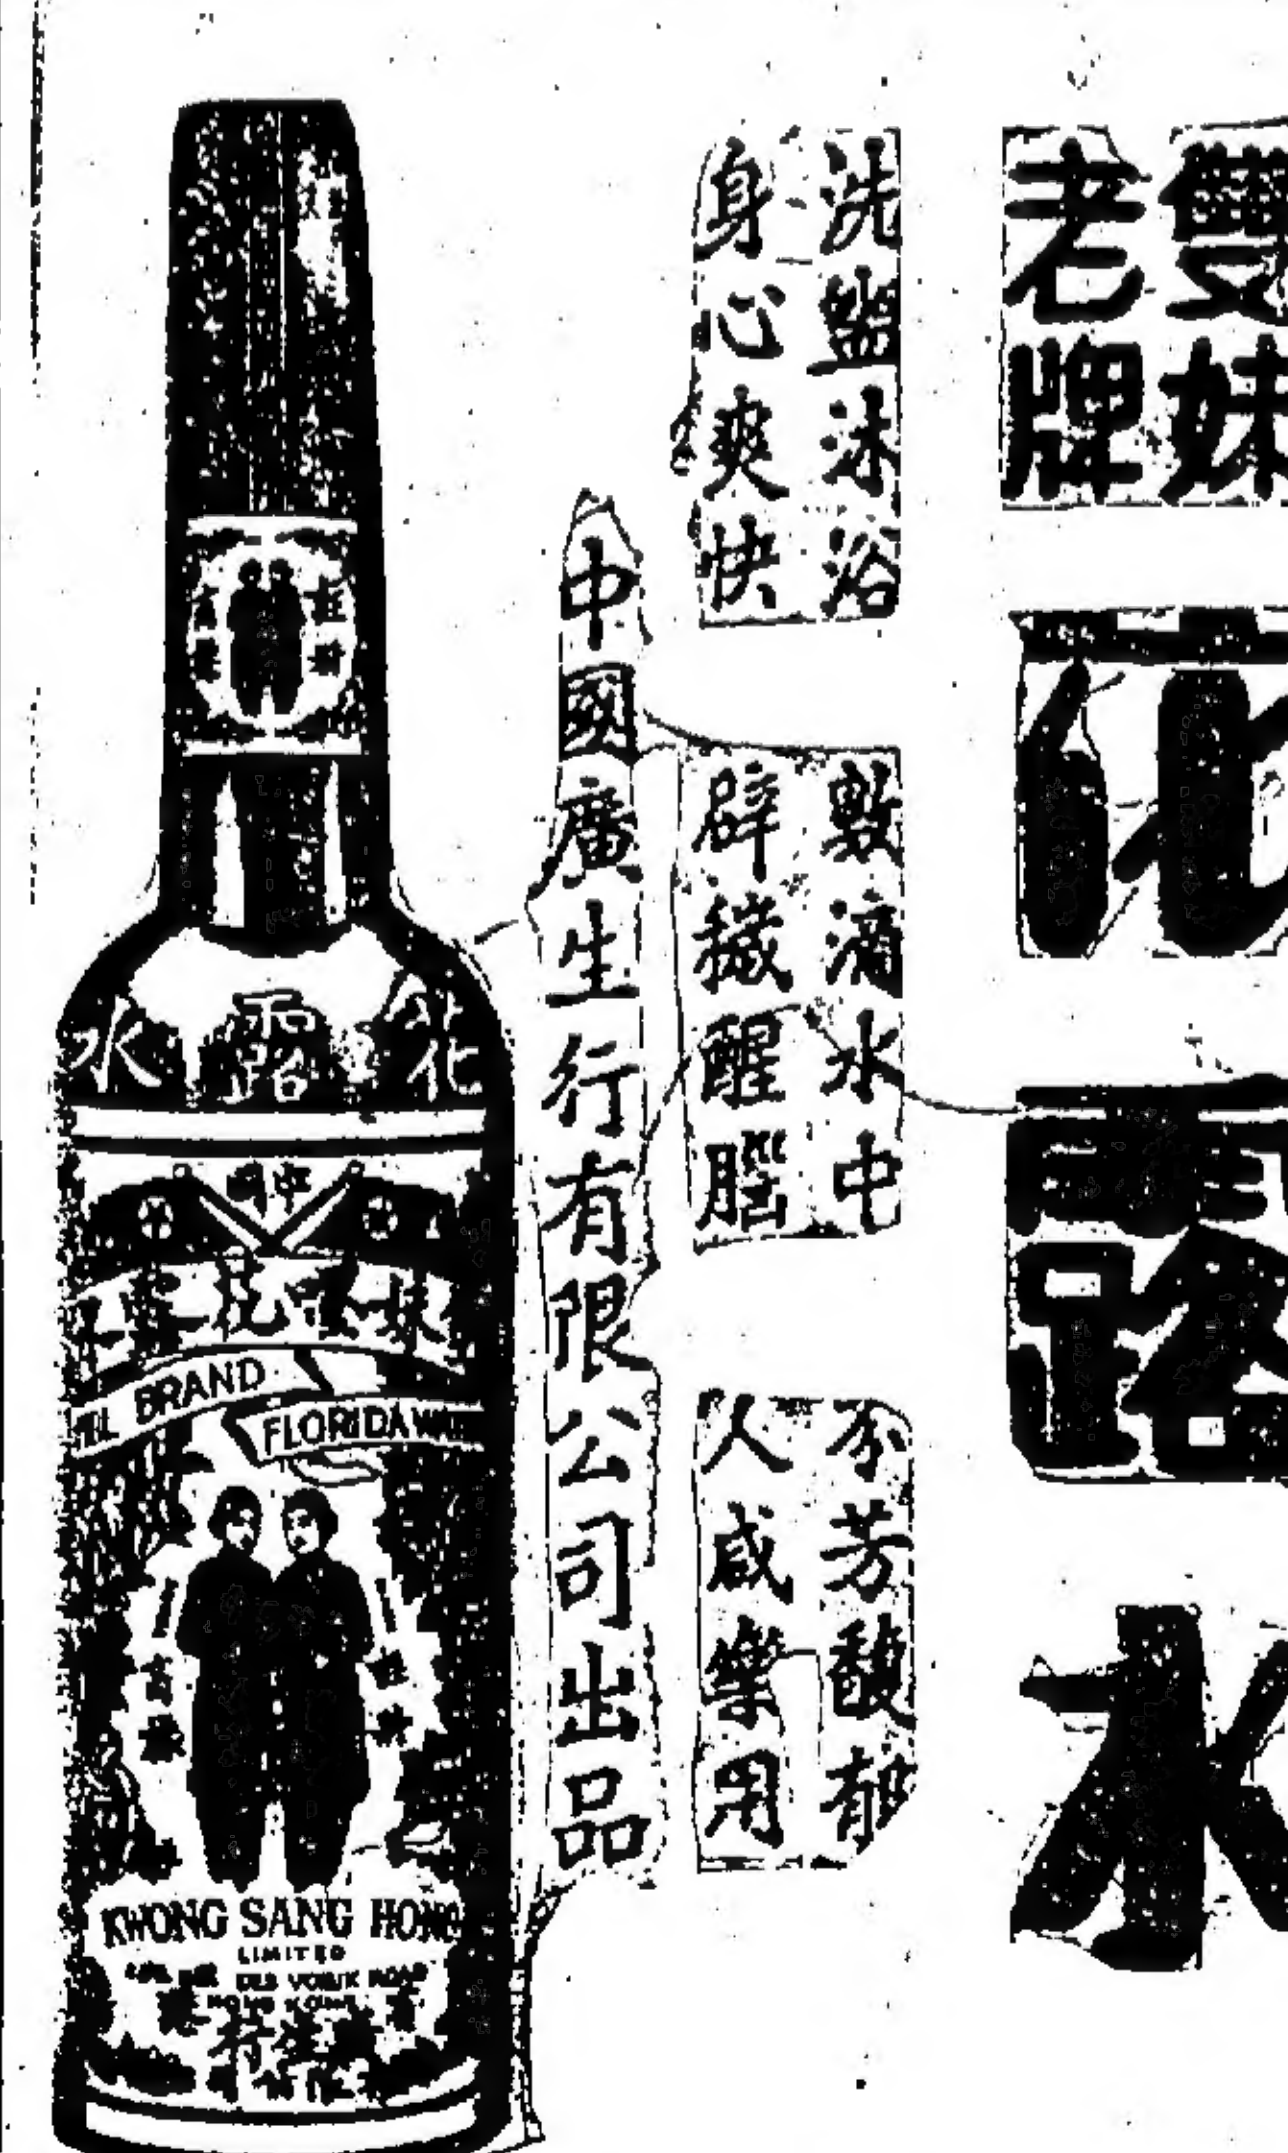 雙妹
老牌
花露水
洗盥沐浴
身心爽快
數滴水中
辟穢醒腦
芬芳馥郁
人咸樂用
中國廣生行有限公司出品
花露水
BRAND
FLORIDA WAT
KWONG SANG HONG
LIMITED
DES VOEUX ROAD
HONG KONG